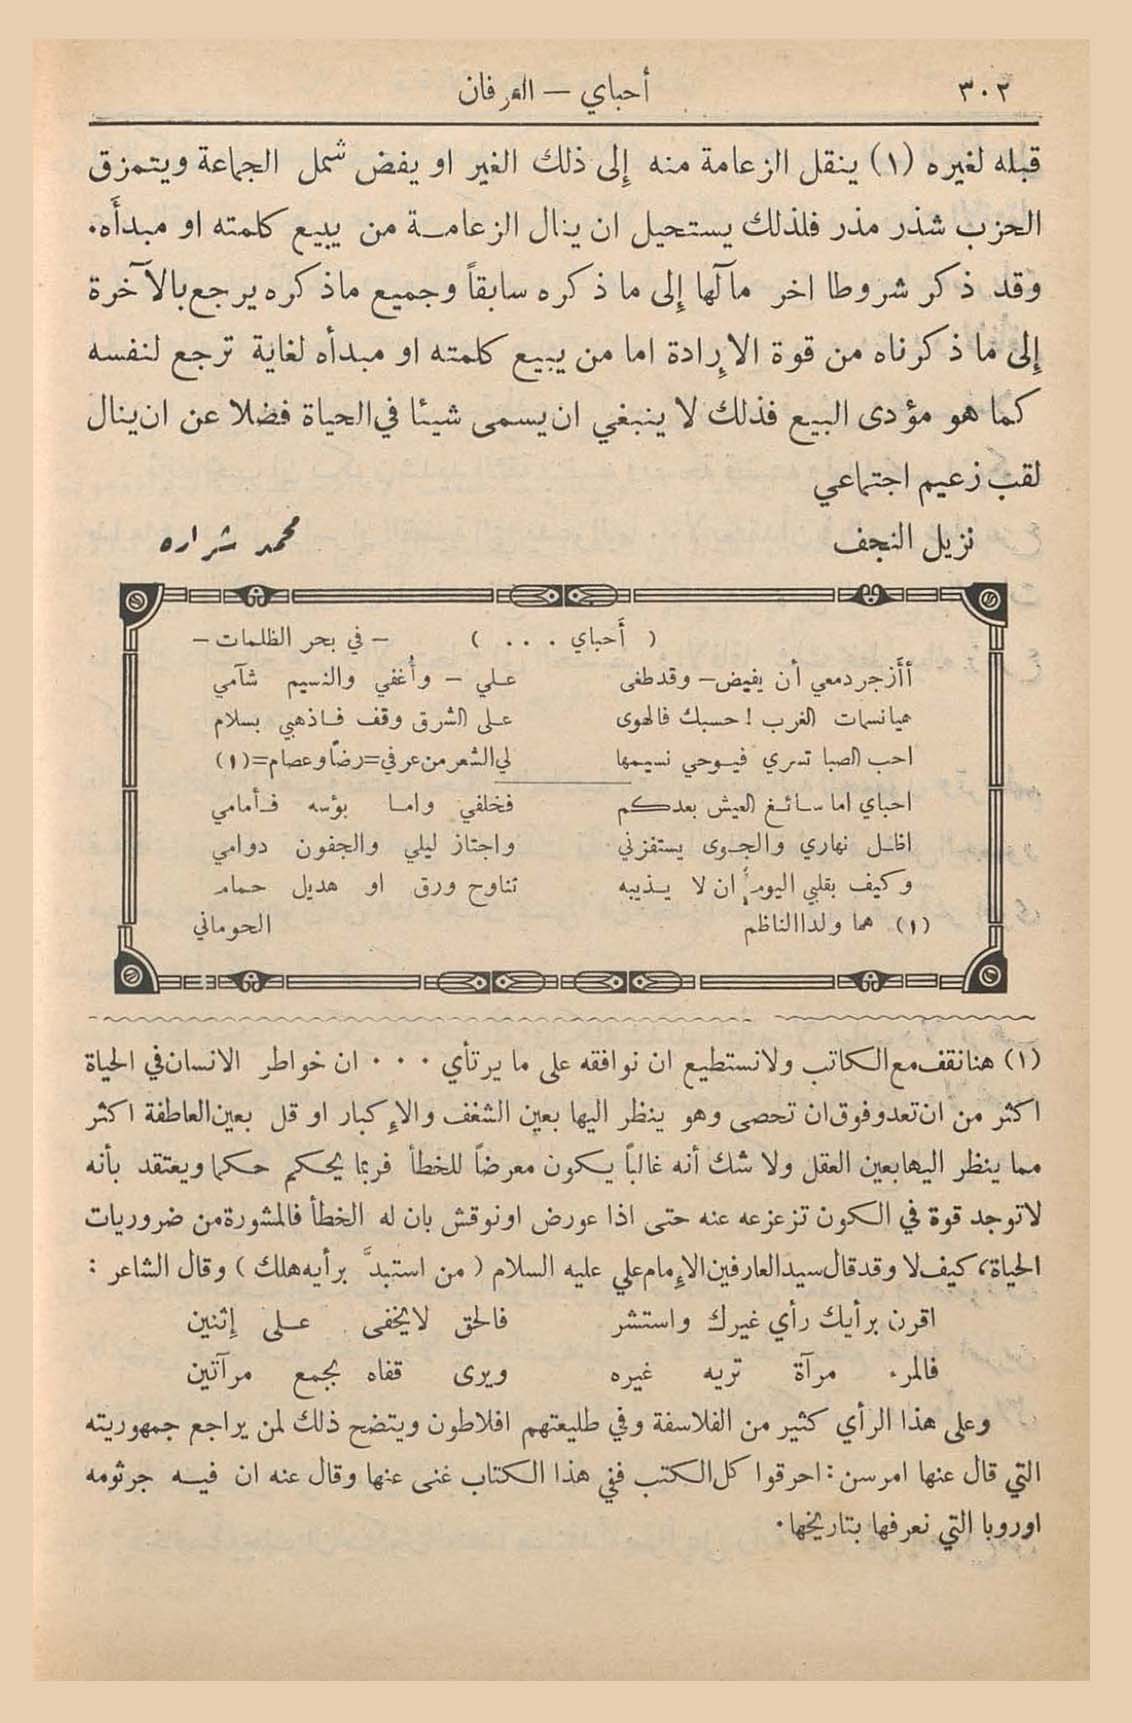 ٣٠٢
أحباي — العرفان
قبله لغيره (١) ينقل الزعامة منه إلى ذلك الغير او يفض شمل الجماعة ويتمزق
الحزب شذر مذر فلذلك يستحيل ان ينال الزعامة من يبيع كلمته او مبدأه.
وقد ذكر شروطا اخر مآلها إلى ما ذكره سابقاً وجميع ماذكره يرجع بالآخرة
إلى ما ذكرناه من قوة الإرادة اما من يبيع كلمته او مبدأه لغاية ترجع لنفسه
كما هو مؤدى البيع فذلك لا ينبغي ان يسمى شيئا في الحياة فضلا عن ان ينال
لقب زعيم اجتماعي
نزيل النجف محمد شراره
( أحباي . . . ) – في بحر الظلمات –
أأزجر دمعي أن يفيض – وقد طغى علي – وأغفي والنسيم شآمي
هيا نسمات الغرب ! حسبك فالهوى على الشرق وقف فاذهبي بسلام
احب الصبا تسري فيوحي نسيمها لي الشعر من عرفي = رضاً وعصام = (١)
احباي اما سائغ العيش بعدكم فخلفي واما بؤسه فأمامي
اظل نهاري والجوى يستفزني واجتاز ليلي والجفون دوامي
وكيف بقلبي اليوم أن لا يذيبه تناوح ورق او هديل حمام
(١) هما ولدا الناظم الحوماني
(١) هنا نقف مع الكاتب ولا نستطيع ان نوافقه على ما يرتأي . . . ان خواطر الانسان في الحياة
اكثر من ان تعد وفوق ان تحصى وهو ينظر اليها بعين الشغف والإكبار او قل بعين العاطفة اكثر
مما ينظر اليها بعين العقل ولا شك أنه غالباً يكون معرضاً للخطأ فربما يحكم حكما ويعتقد بأنه
لا توجد قوة في الكون تزعزعه عنه حتى اذا عورض او نوقش بان له الخطأ فالمشورة من ضروريات
الحياة، كيف لا وقد قال سيد العارفين الإمام علي عليه السلام ( من استبدَّ برأيه هلك ) وقال الشاعر :
اقرن برأيك رأي غيرك واستشر فالحق لا يخفى على إثنين
فالمرء مرآة تريه غيره ويرى قفاه بجمع مرآتين
وعلى هذا الرأي كثير من الفلاسفة وفي طليعتهم افلاطون ويتضح ذلك لمن يراجع جمهوريته
التي قال عنها امرسن : احرقوا كل الكتب ففي هذا الكتاب غنى عنها وقال عنه ان فيه جرثومه
اوروبا التي نعرفها بتاريخها.